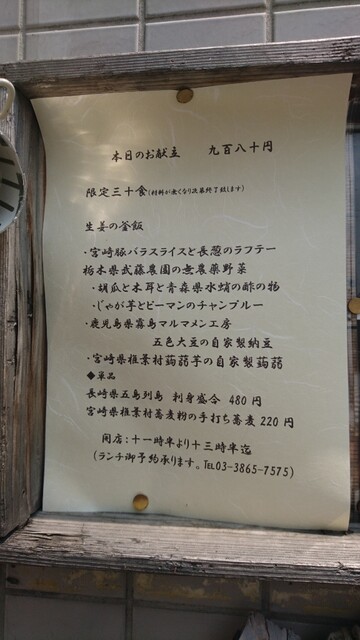 本日のお献立　九百八十円
限定三十食(材料が無くなり次第終了致します)
生姜の釜飯
・宮崎豚バラスライスと長葱のラフテー
栃木県武藤農園の無農薬野菜
・胡瓜と木耳と青森県水蛸の酢の物
・じゃが芋とピーマンのチャンプルー
・鹿児島県霧島マルマメン工房
五色大豆の自家製納豆
・宮崎県椎葉村蒟蒻芋の自家製蒟蒻
◆単品
長崎県五島列島　刺身盛合　480円
宮崎県椎葉村蕎麦粉の手打ち蕎麦 220円
開店：十一時半より十三時半迄
(ランチ御予約承ります。TEL03-3865-7575)